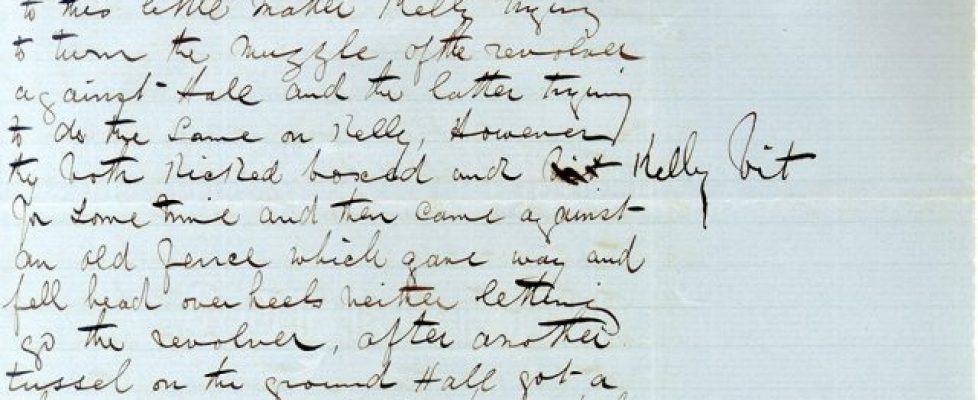 to this little matter Kelly trying
to turn the muzzle of the revolver
against Hall and the latter trying
to do the same on Kelly, However
they both kicked boxed and bit Kelly bit
for some time and then came against
an old fence which gave way and
fell head over heels neither letting
go the revolver, after another
tussel on the ground Hall got a